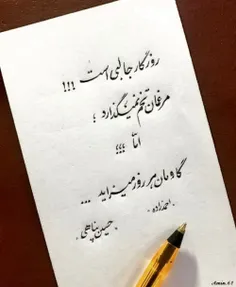 روزگار جالبی است !!!
مرغمان تخم نمیگذارد ؛
اما ؛؛؛
گاومان هر روز میزاید ...
" احمدزاده "
" حسین پناهی "
Amin.81